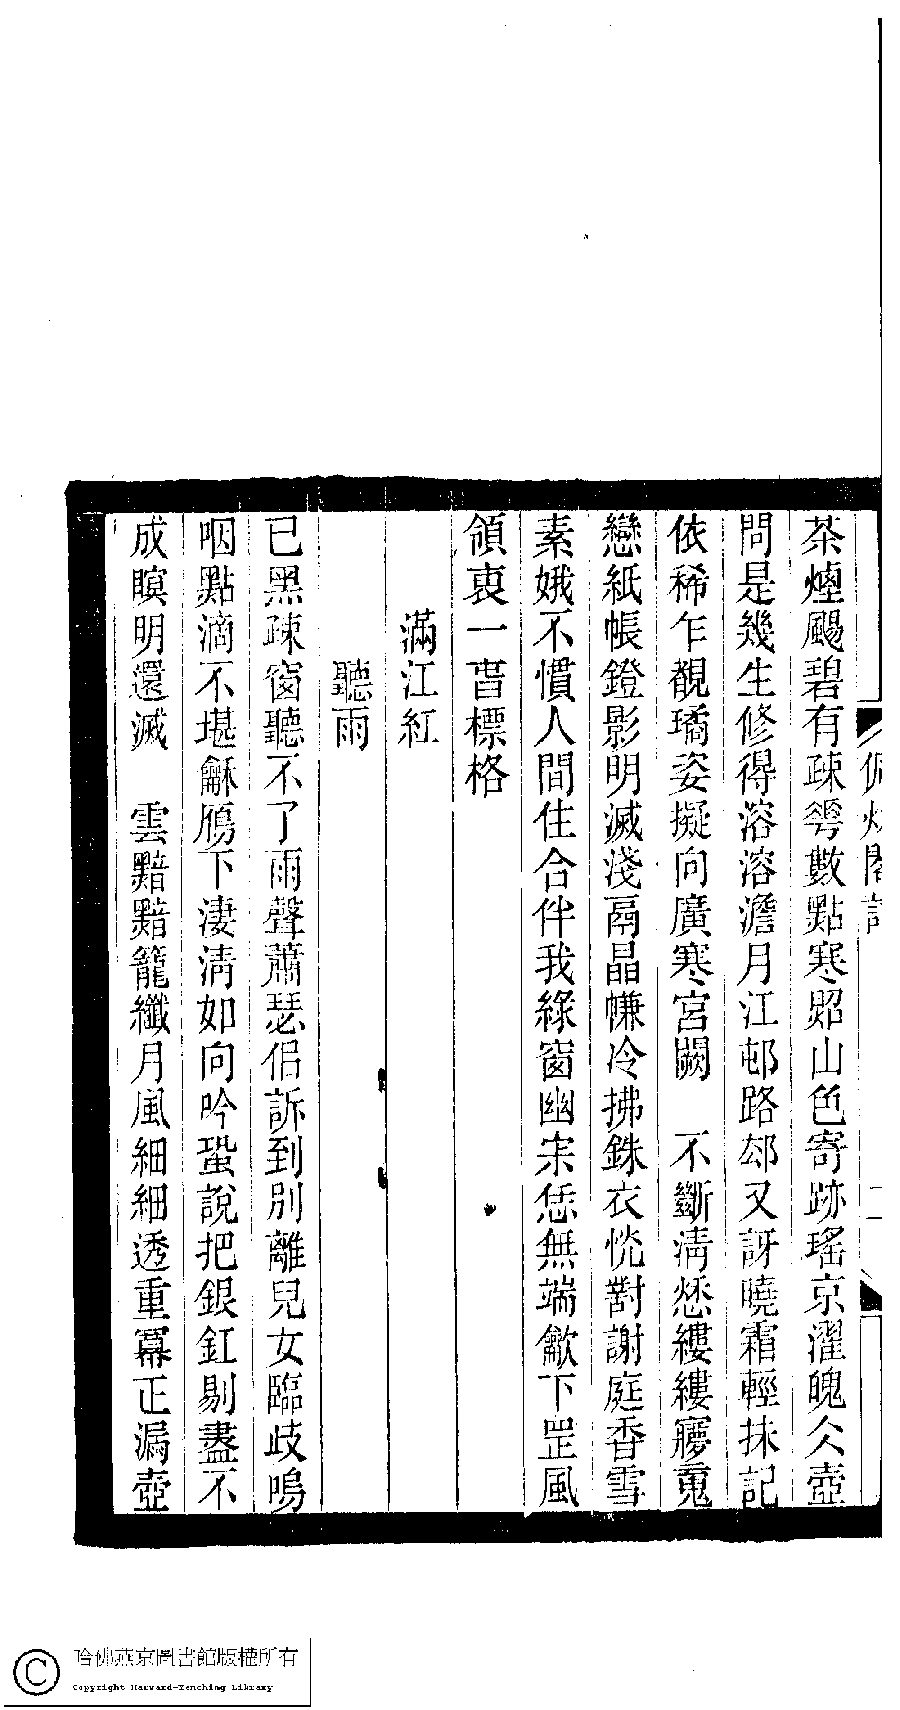 茶煙颺碧有疎琴數點寒照山色寄跡瑤京濯魄仌壺
問是幾生修得溶溶澹月江邨路郤又訝曉霜輕抹記
依稀乍覩璚姿擬向廣寒宮闕　不斷淸愁縷縷寥蒐
戀紙帳鐙影明滅淺鬲晶㡘冷拂銖衣恍對謝庭香雪
素娥不慣人間住合伴我綠窗幽宋恁無端歛下罡風
領㐮一畨標格
滿江紅
聽雨
已黑疎窗聽不了雨聲蕭瑟侶訴到別離兒女臨歧嗚
咽點滴不堪龢鴈下淒淸如向吟蛩說把銀釭剔盡不
成暝明還滅　雲黯黯籠纖月風細細透重冪正漏壺
佩秋閣詞
二
哈佛燕京圖書館版權所有
Copyright Harvard-Yenching Library